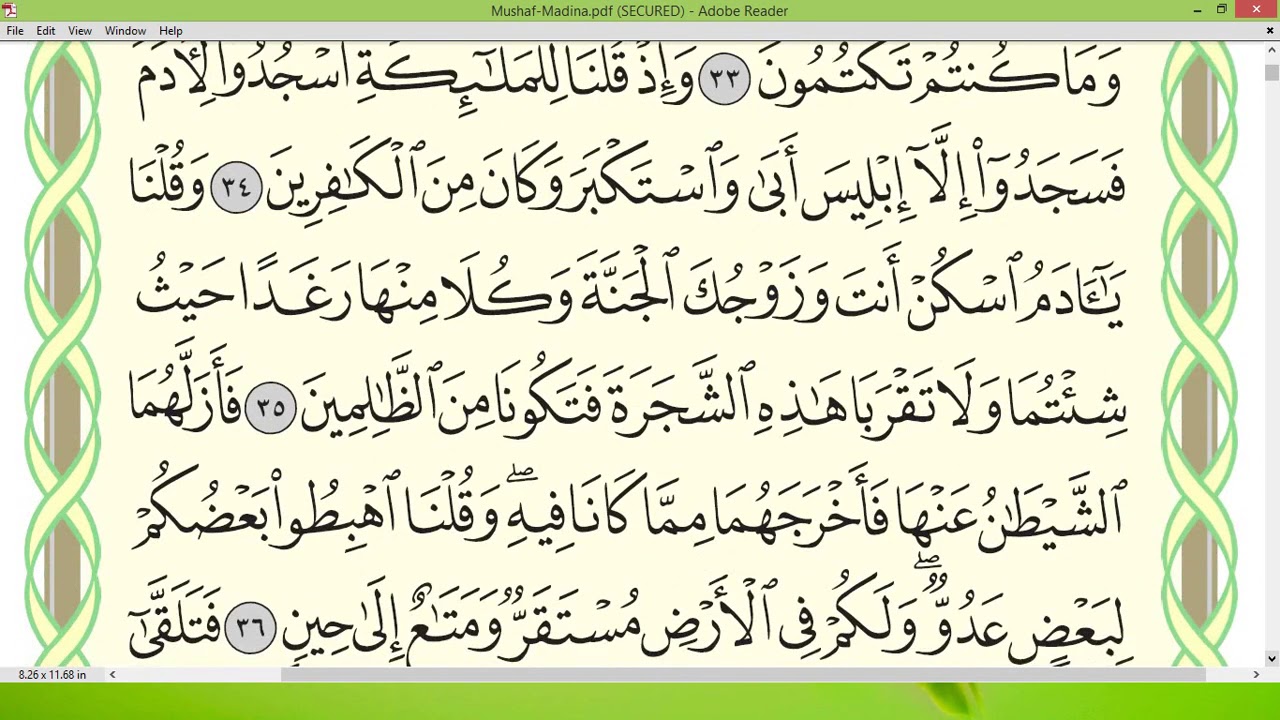 Mushaf-Madina.pdf (SECURED) - Adobe Reader
File Edit View Window Help
وَمَا كُنتُمْ تَكْتُمُونَ ٣٣ وَإِذْ قُلْنَا لِلْمَلَـٰٓئِكَةِ ٱسْجُدُوا۟ لِـَٔادَمَ
فَسَجَدُوٓا۟ إِلَّآ إِبْلِيسَ أَبَىٰ وَٱسْتَكْبَرَ وَكَانَ مِنَ ٱلْكَـٰفِرِينَ ٣٤ وَقُلْنَا
يَـٰٓـَٔادَمُ ٱسْكُنْ أَنتَ وَزَوْجُكَ ٱلْجَنَّةَ وَكُلَا مِنْهَا رَغَدًا حَيْثُ
شِئْتُمَا وَلَا تَقْرَبَا هَـٰذِهِ ٱلشَّجَرَةَ فَتَكُونَا مِنَ ٱلظَّـٰلِمِينَ ٣٥ فَأَزَلَّهُمَا
ٱلشَّيْطَـٰنُ عَنْهَا فَأَخْرَجَهُمَا مِمَّا كَانَا فِيهِ ۖ وَقُلْنَا ٱهْبِطُوا۟ بَعْضُكُمْ
لِبَعْضٍ عَدُوٌّ ۖ وَلَكُمْ فِى ٱلْأَرْضِ مُسْتَقَرٌّ وَمَتَـٰعٌ إِلَىٰ حِينٍ ٣٦ فَتَلَقَّىٰٓ
8.26 x 11.68 in